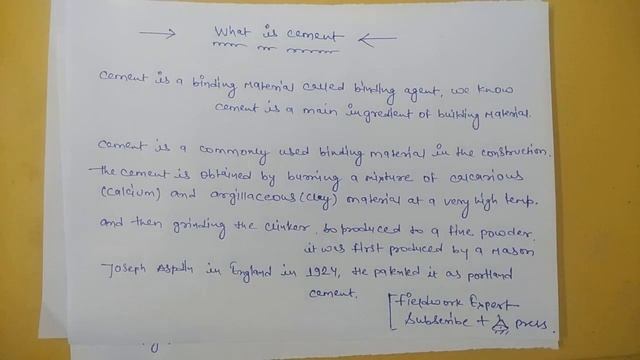 What is cement
cement is a binding material called binding agent, we know
cement is a main ingredient of building material.
cement is a commonly used binding material in the construction.
the cement is obtained by burning a mixture of calcarious
(calcium) and argillaceous (clay) material at a very high temp.
and then grinding the clinker, so produced to a fine powder.
it was first produced by a mason
Joseph Aspdin in England in 1924, He patented it as portland
cement.
fieldwork Expert
Subscribe + press.